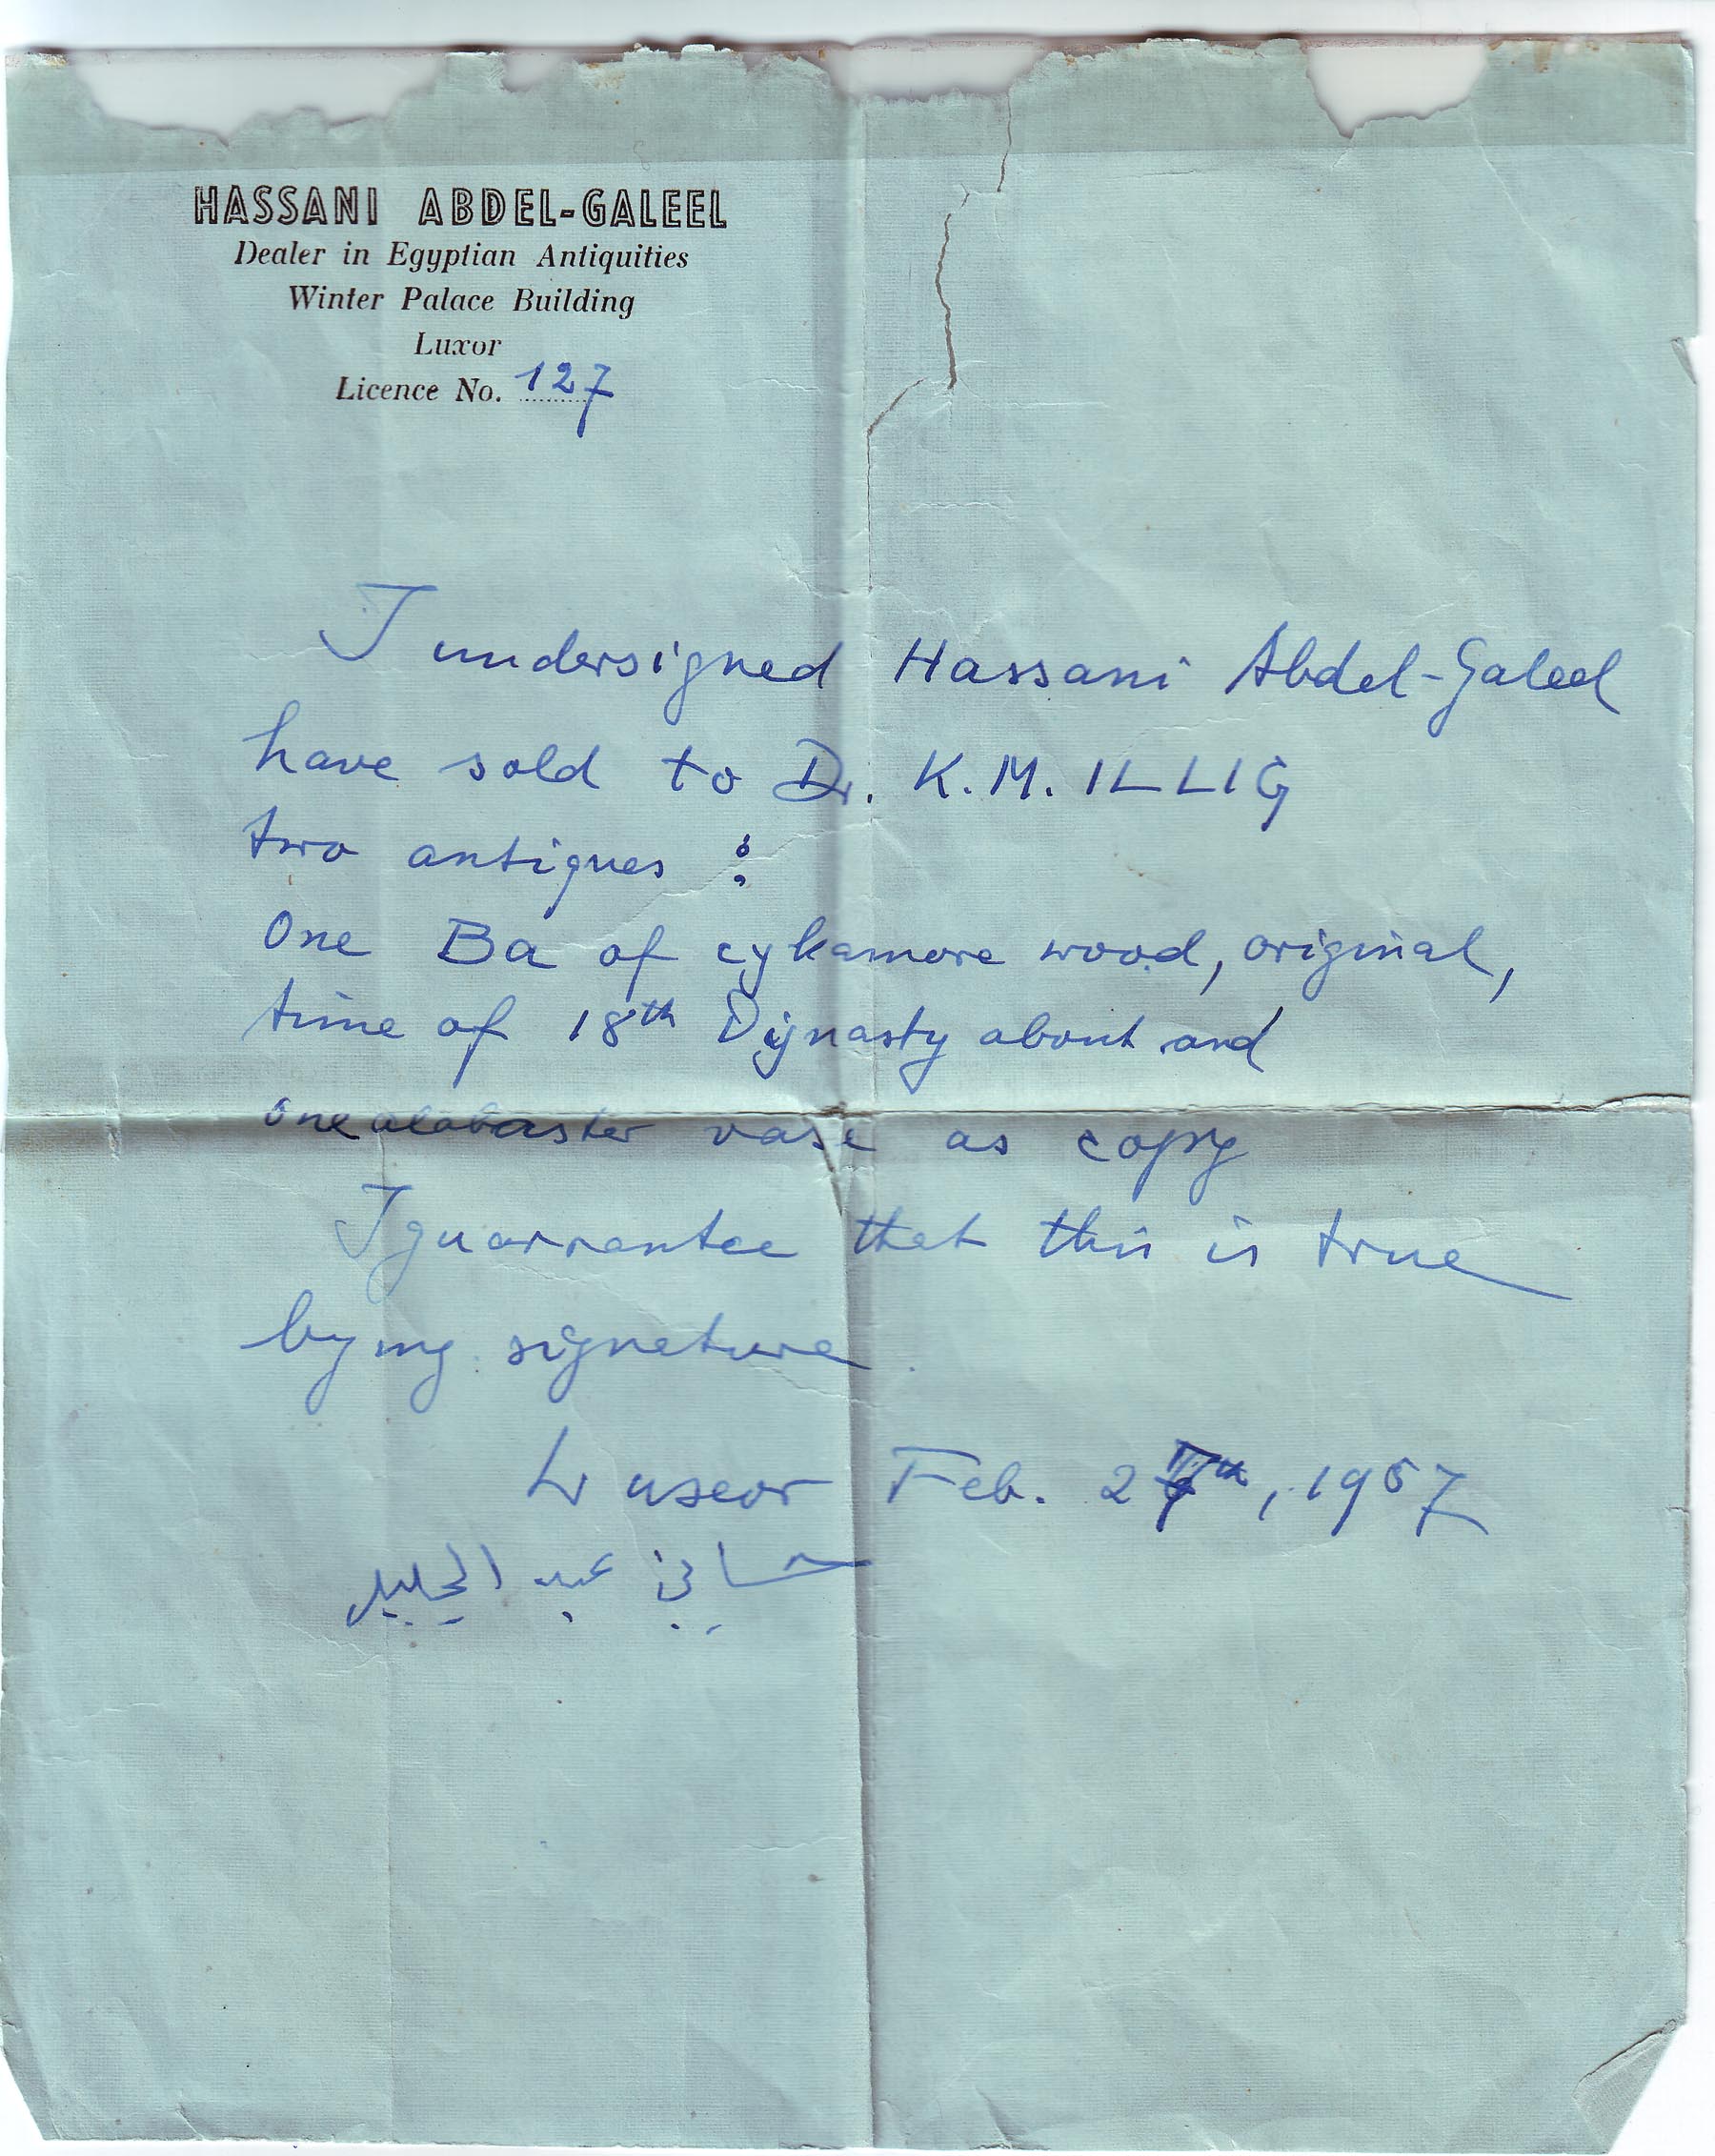 HASSANI ABDEL-GALEEL
Dealer in Egyptian Antiquities
Winter Palace Building
Luxor
Licence No. 127
I undersigned Hassani Abdel-Galeel
have sold to Dr. K.M. ILLIG
two antiques :
One Ba of cykamore wood, original,
time of 18th Dynasty about and
one alabaster vase as copy
I guarrantee that this is true
by my signature.
Luxor Feb. , 1967
حساني عبد الجليل